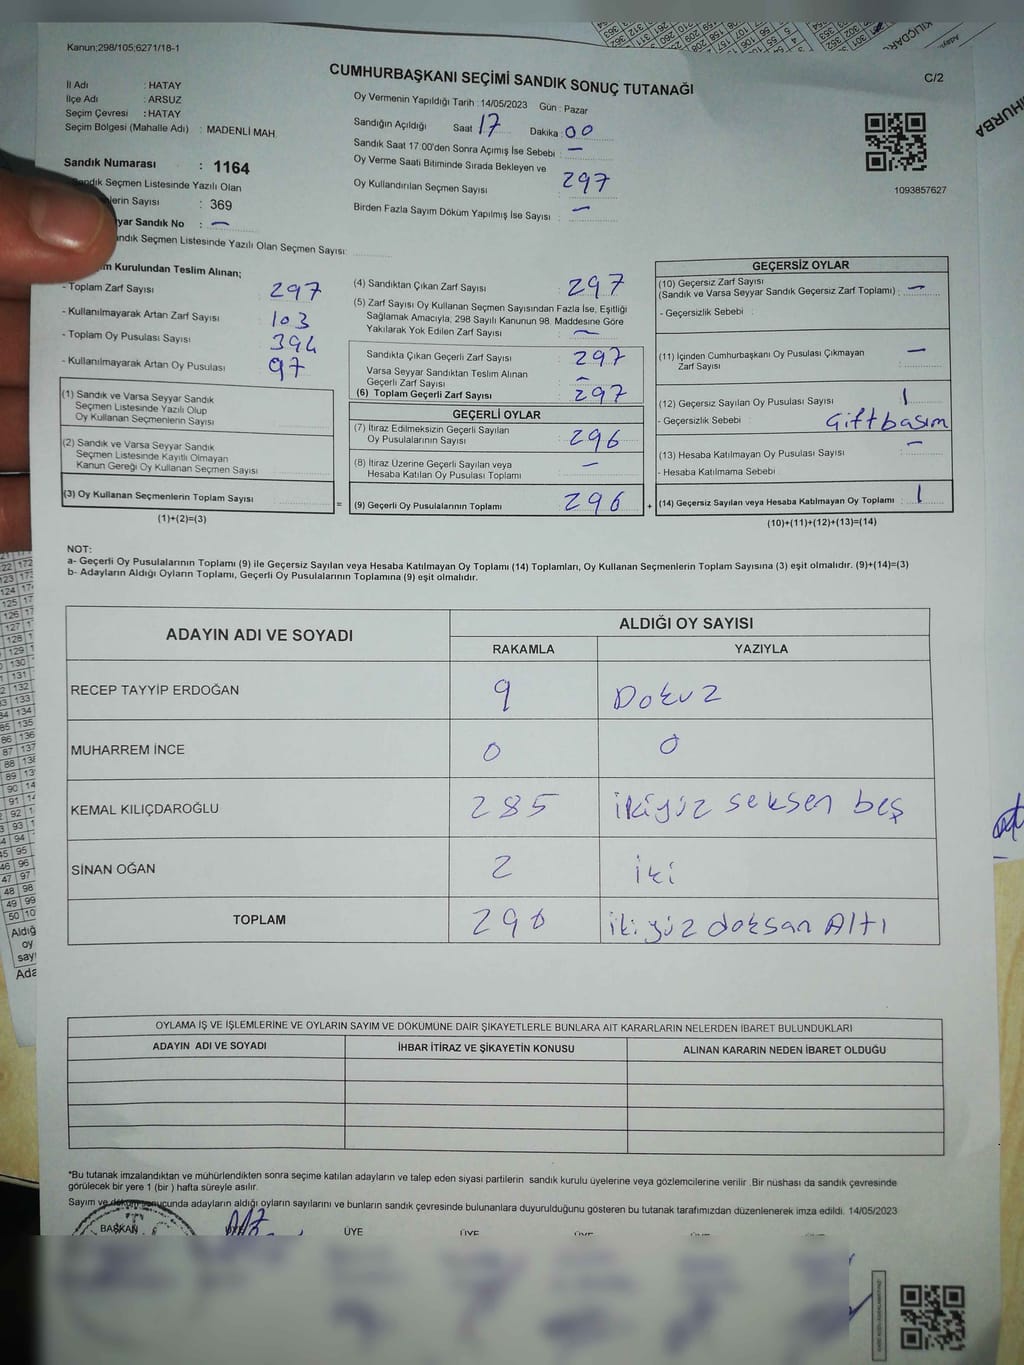 Kanun;298/105;6271/18-1
CUMHURBAŞKANI SEÇİMİ SANDIK SONUÇ TUTANAĞI
C/2
İl Adı : HATAY
İlçe Adı : ARSUZ
Seçim Çevresi : HATAY
Seçim Bölgesi (Mahalle Adı) : MADENLİ MAH.
Sandık Numarası : 1164
Sandık Seçmen Listesinde Yazılı Olan
lerin Sayısı : 369
yar Sandık No : —
ndık Seçmen Listesinde Yazılı Olan Seçmen Sayısı:
Oy Vermenin Yapıldığı Tarih : 14/05/2023 Gün : Pazar
Sandığın Açıldığı Saat 17 Dakika : 00
Sandık Saat 17:00'den Sonra Açımış İse Sebebi : —
Oy Verme Saati Bitiminde Sırada Bekleyen ve
Oy Kullandırılan Seçmen Sayısı 297
Birden Fazla Sayım Döküm Yapılmış İse Sayısı : —
1093857627
m Kurulundan Teslim Alınan;
- Toplam Zarf Sayısı 297
- Kullanılmayarak Artan Zarf Sayısı 103
- Toplam Oy Pusulası Sayısı 394
- Kullanılmayarak Artan Oy Pusulası 97
(1) Sandık ve Varsa Seyyar Sandık
Seçmen Listesinde Yazılı Olup
Oy Kullanan Seçmenlerin Sayısı
(2) Sandık ve Varsa Seyyar Sandık
Seçmen Listesinde Kayıtlı Olmayan
Kanun Gereği Oy Kullanan Seçmen Sayısı
(3) Oy Kullanan Seçmenlerin Toplam Sayısı
(1)+(2)=(3)
=
(4) Sandıktan Çıkan Zarf Sayısı 297
(5) Zarf Sayısı Oy Kullanan Seçmen Sayısından Fazla İse, Eşitliği
Sağlamak Amacıyla, 298 Sayılı Kanunun 98. Maddesine Göre
Yakılarak Yok Edilen Zarf Sayısı —
Sandıkta Çıkan Geçerli Zarf Sayısı 297
Varsa Seyyar Sandıktan Teslim Alınan
Geçerli Zarf Sayısı —
(6) Toplam Geçerli Zarf Sayısı 297
GEÇERLİ OYLAR
(7) İtiraz Edilmeksizin Geçerli Sayılan
Oy Pusulalarının Sayısı 296
(8) İtiraz Üzerine Geçerli Sayılan veya
Hesaba Katılan Oy Pusulası Toplamı —
(9) Geçerli Oy Pusulalarının Toplamı 296
+
GEÇERSİZ OYLAR
(10) Geçersiz Zarf Sayısı
(Sandık ve Varsa Seyyar Sandık Geçersiz Zarf Toplamı) : —
- Geçersizlik Sebebi :
(11) İçinden Cumhurbaşkanı Oy Pusulası Çıkmayan
Zarf Sayısı —
(12) Geçersiz Sayılan Oy Pusulası Sayısı 1
- Geçersizlik Sebebi : Çiftbasım
(13) Hesaba Katılmayan Oy Pusulası Sayısı —
- Hesaba Katılmama Sebebi :
(14) Geçersiz Sayılan veya Hesaba Katılmayan Oy Toplamı : 1
(10)+(11)+(12)+(13)=(14)
NOT:
a- Geçerli Oy Pusulalarının Toplamı (9) ile Geçersiz Sayılan veya Hesaba Katılmayan Oy Toplamı (14) Toplamları, Oy Kullanan Seçmenlerin Toplam Sayısına (3) eşit olmalıdır. (9)+(14)=(3)
b- Adayların Aldığı Oyların Toplamı, Geçerli Oy Pusulalarının Toplamına (9) eşit olmalıdır.
ADAYIN ADI VE SOYADI
ALDIĞI OY SAYISI
RAKAMLA YAZIYLA
RECEP TAYYİP ERDOĞAN 9 Dokuz
MUHARREM İNCE 0 0
KEMAL KILIÇDAROĞLU 285 ikiyüz seksen beş
SİNAN OĞAN 2 iki
TOPLAM 296 ikiyüz doksan Altı
OYLAMA İŞ VE İŞLEMLERİNE VE OYLARIN SAYIM VE DÖKÜMÜNE DAİR ŞİKAYETLERLE BUNLARA AİT KARARLARIN NELERDEN İBARET BULUNDUKLARI
ADAYIN ADI VE SOYADI İHBAR İTİRAZ VE ŞİKAYETİN KONUSU ALINAN KARARIN NEDEN İBARET OLDUĞU
*Bu tutanak imzalandıktan ve mühürlendikten sonra seçime katılan adayların ve talep eden siyasi partilerin sandık kurulu üyelerine veya gözlemcilerine verilir .Bir nüshası da sandık çevresinde
görülecek bir yere 1 (bir ) hafta süreyle asılır.
Sayım ve döküm sonucunda adayların aldığı oyların sayılarını ve bunların sandık çevresinde bulunanlara duyurulduğunu gösteren bu tutanak tarafımızdan düzenlenerek imza edildi. 14/05/2023
BAŞKAN ÜYE ÜYE ÜYE ÜYE